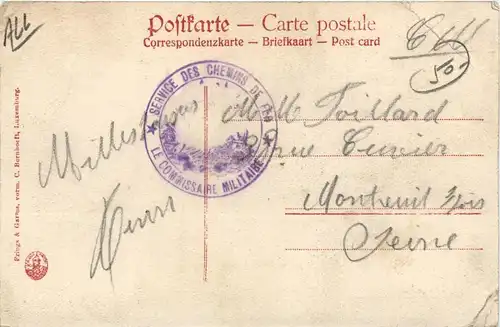 ALL
Postkarte — Carte postale
Correspondenzkarte — Briefkaart — Post card
50.
★ SERVICE DES CHEMINS DE FER ★
LE COMMISSAIRE MILITAIRE
Mille
Henri
M. Toillard
rue Cuvier
Montreuil s/bois
Seine
Prings & Garius, vorm. C. Bernhoeft, Luxemburg.